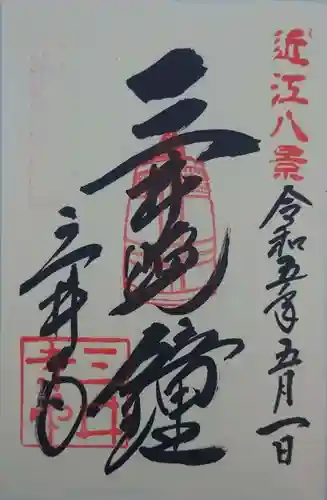 近江八景
令和五年五月一日
三井晩鐘
三井寺